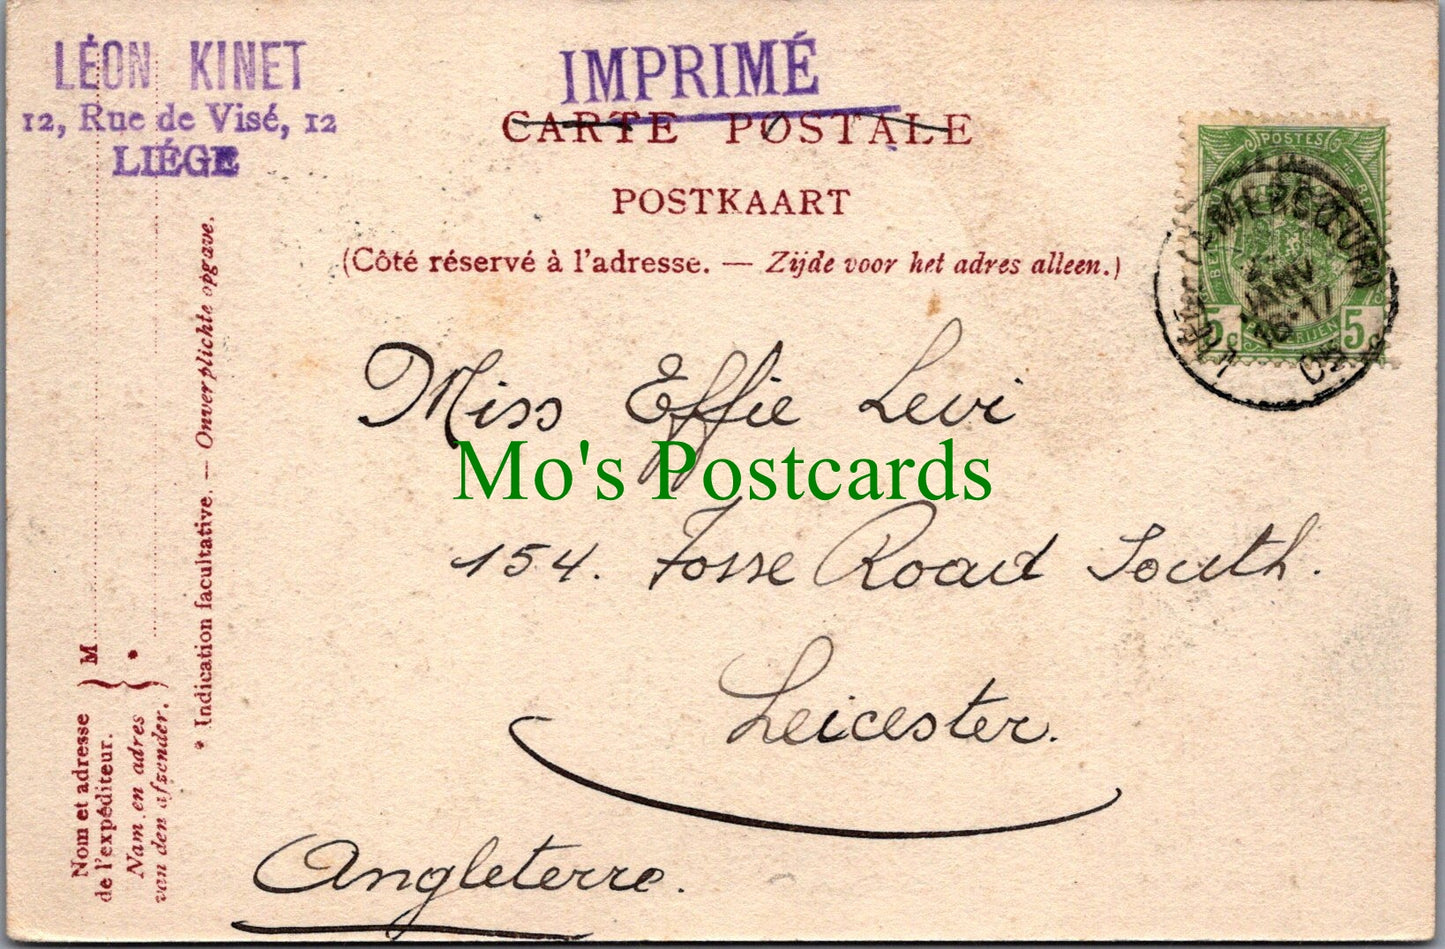 LÉON KINET
12, Rue de Visé, 12
LIÉGE
IMPRIMÉ
CARTE POSTALE
POSTKAART
(Côté réservé à l'adresse. — Zijde voor het adres alleen.)
POSTES
5c 5
JANV
Miss Effie Levi
Mo's Postcards
154. Fosse Road South.
Leicester.
Angleterre.
Nom et adresse
de l'expéditeur.
M
Nam en adres
van den afzender.
*
* Indication facultative. — Onverplichte opgave.